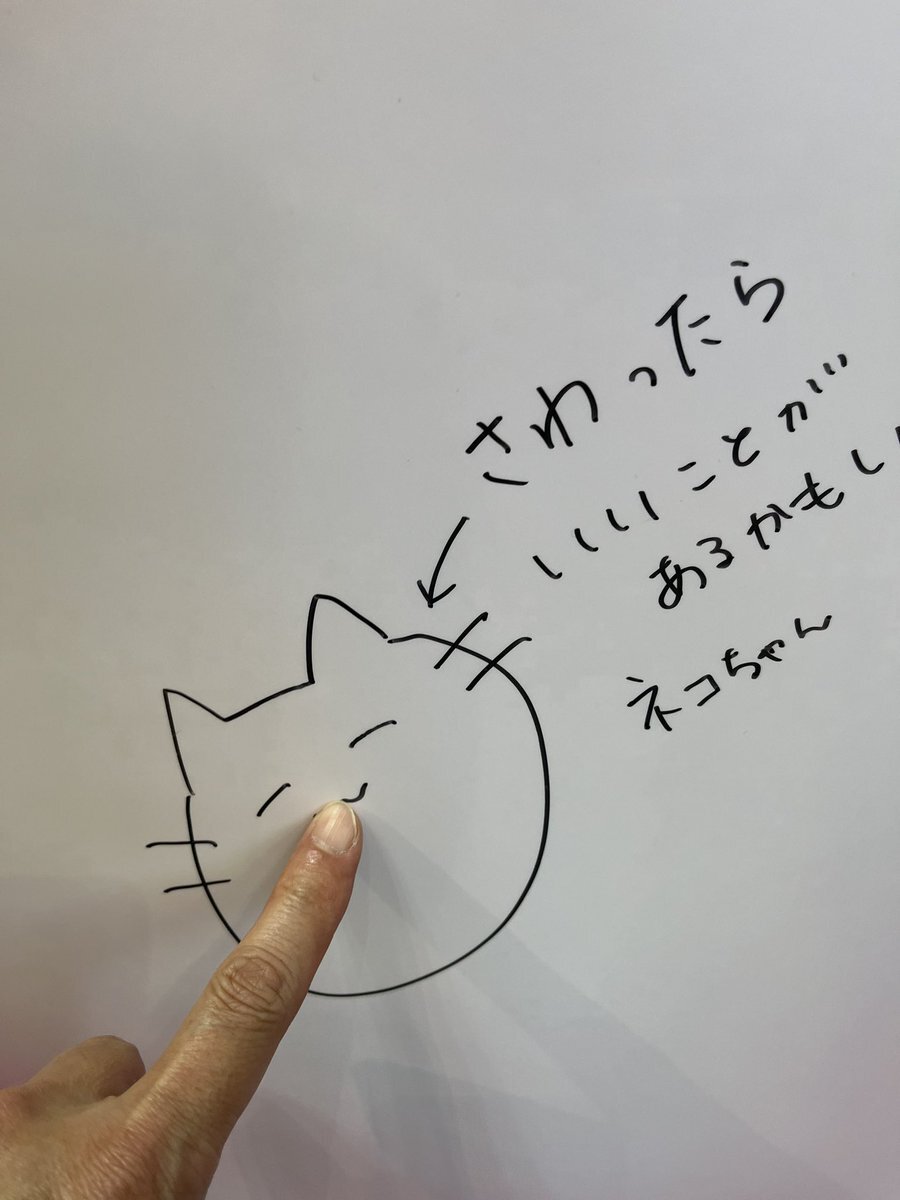 さわったら
いいことが
あるかもしれ
ネコちゃん